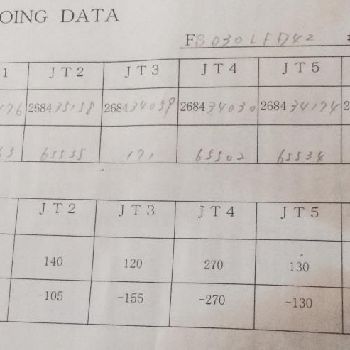 OING DATA
F8030LFD42
1 JT2 JT3 JT4 JT5
176 268435158 268434039 268434030 268434174 2
65535 171 65502 65534
JT2 JT3 JT4 JT5
140 120 270 130
-105 -155 -270 -130